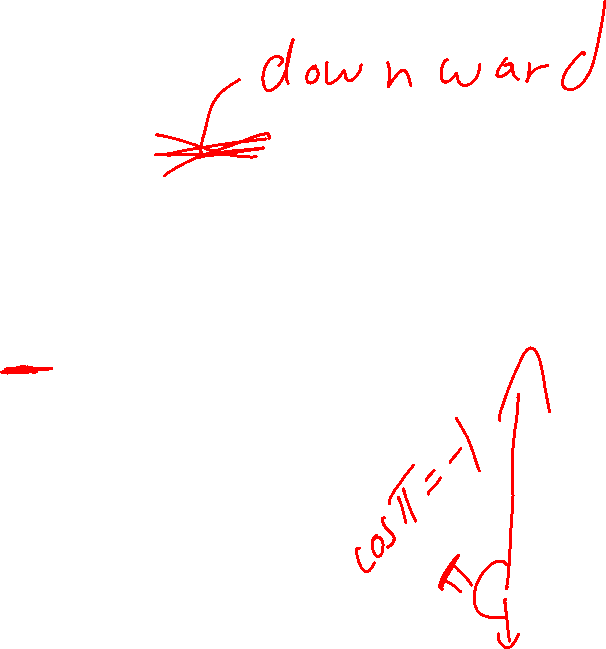 downward
cosπ=-1
π